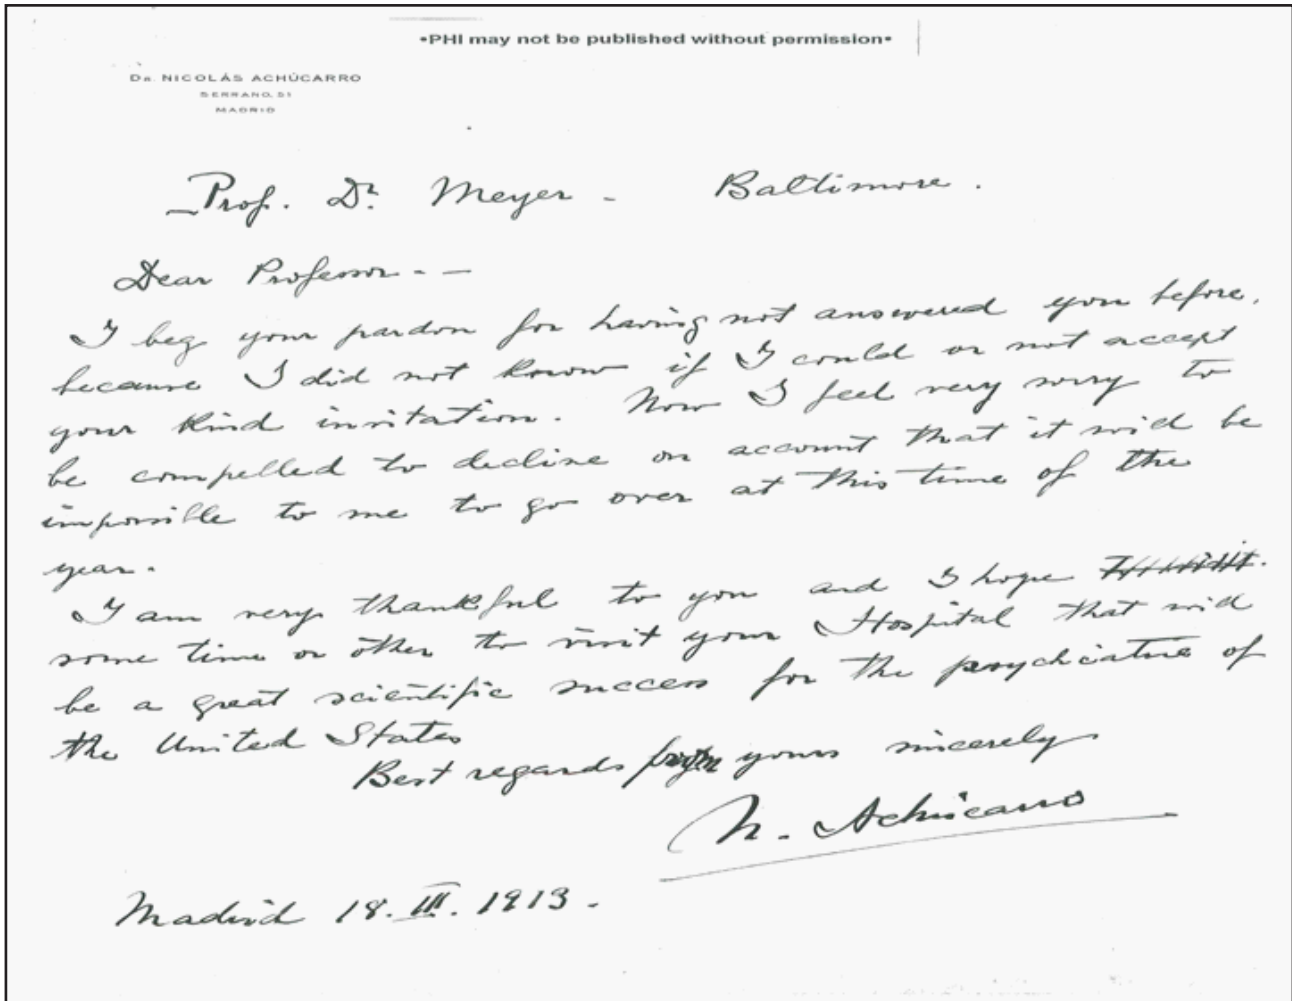 •PHI may not be published without permission•
DR. NICOLÁS ACHÚCARRO
SERRANO, 51
MADRID
Prof. Dr. Meyer - Baltimore.
Dear Professor. - -
I beg your pardon for having not answered you before,
because I did not know if I could or not accept
your kind invitation. Now I feel very sorry to
be compelled to decline on account that it will be
impossible to me to go over at this time of the
year.
I am very thankful to you and I hope
some time or other to visit your Hospital that will
be a great scientific success for the psychiatrie of
the United States
Best regards yours sincerely
N. Achúcarro
Madrid 18. III. 1913.